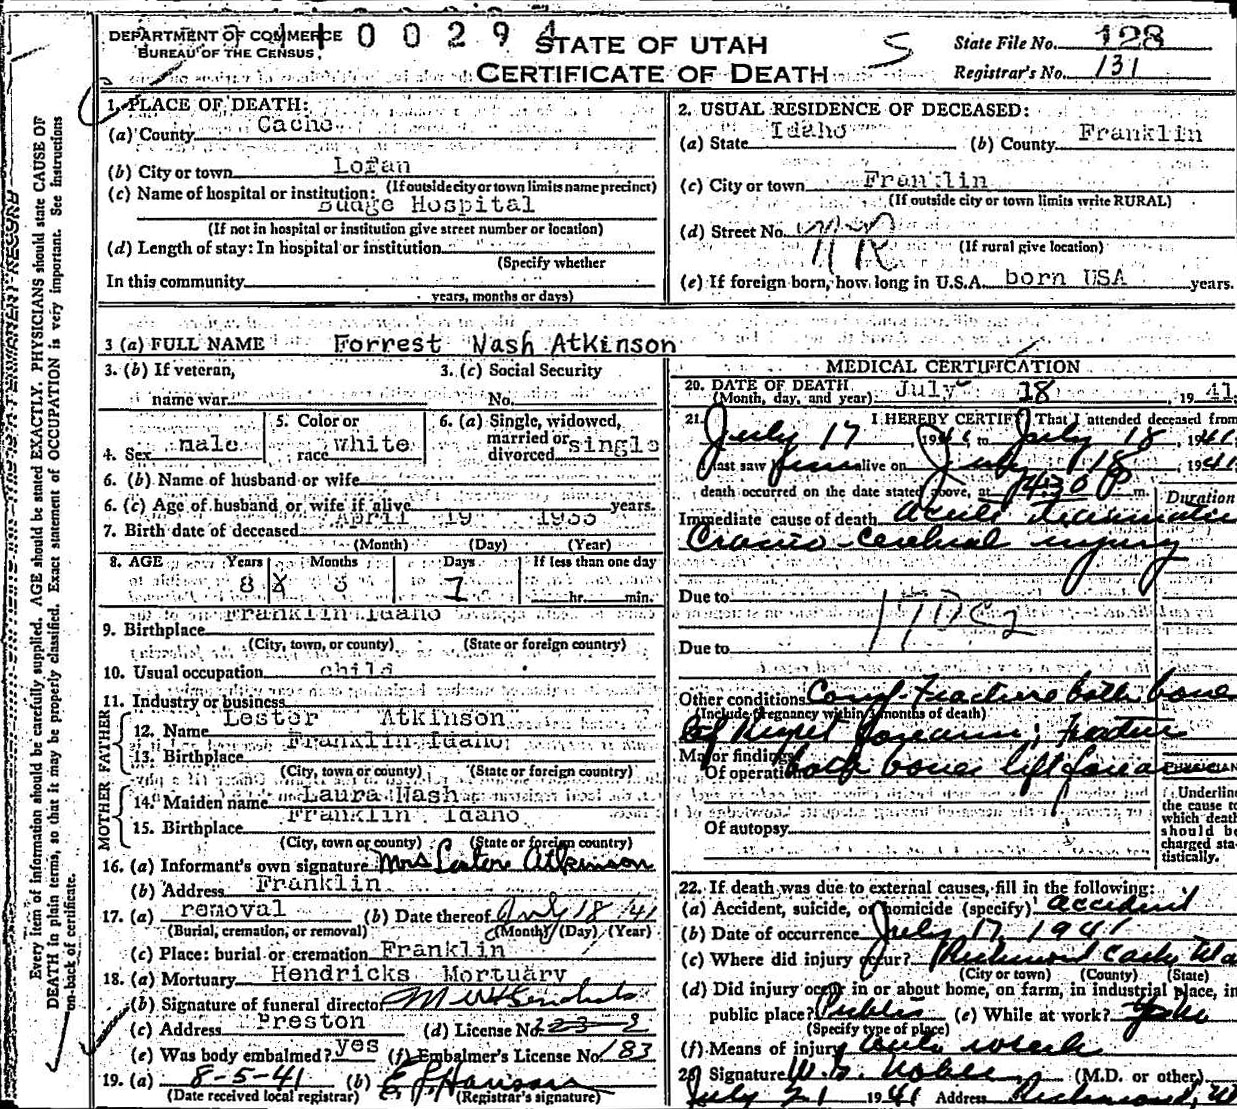 DEPARTMENT OF COMMERCE
BUREAU OF THE CENSUS
00294
STATE OF UTAH
CERTIFICATE OF DEATH
S
State File No. 128
Registrar's No. 131
Every item of information should be carefully supplied. AGE should be stated EXACTLY. PHYSICIANS should state CAUSE OF
DEATH in plain terms, so that it may be properly classified. Exact statement of OCCUPATION is very important. See Instructions
on back of certificate.
1. PLACE OF DEATH:
(a) County Cache
(b) City or town Logan
(If outside city or town limits name precinct)
(c) Name of hospital or institution:
Budge Hospital
(If not in hospital or institution give street number or location)
(d) Length of stay: In hospital or institution
(Specify whether
In this community
years, months or days)
2. USUAL RESIDENCE OF DECEASED:
(a) State Idaho (b) County Franklin
(c) City or town Franklin
(If outside city or town limits write RURAL)
(d) Street No.
(If rural give location)
(e) If foreign born, how long in U.S.A. born USA years.
3 (a) FULL NAME Forrest Nash Atkinson
3. (b) If veteran, name war
3. (c) Social Security No.
4. Sex male
5. Color or race white
6. (a) Single, widowed, married or divorced single
6. (b) Name of husband or wife
6. (c) Age of husband or wife if alive years.
7. Birth date of deceased April 19 1933
(Month) (Day) (Year)
8. AGE Years Months Days If less than one day
8 3 hr. min.
9. Birthplace Franklin Idaho
(City, town, or county) (State or foreign country)
10. Usual occupation child
11. Industry or business
FATHER
12. Name Lester Atkinson
13. Birthplace Franklin Idaho
(City, town or county) (State or foreign country)
MOTHER
14. Maiden name Laura Nash
15. Birthplace Franklin Idaho
(City, town or county) (State or foreign country)
16. (a) Informant's own signature Mrs Lester Atkinson
(b) Address Franklin
17. (a) removal (b) Date thereof July 18 /41
(Burial, cremation, or removal) (Month) (Day) (Year)
(c) Place: burial or cremation Franklin
18. (a) Mortuary Hendricks Mortuary
(b) Signature of funeral director
(c) Address Preston (d) License No.
(e) Was body embalmed? yes (f) Embalmer's License No. 183
19. (a) 8-5-41 (b)
(Date received local registrar) (Registrar's signature)
MEDICAL CERTIFICATION
20. DATE OF DEATH
(Month, day, and year) July 18, 1941;
21. I HEREBY CERTIFY That I attended deceased from
July 17, 1941 to July 18, 1941;
I last saw him alive on July 18, 1941;
death occurred on the date stated above, at 4:30 P m.
Duration
Immediate cause of death acute traumatic
Cranio-cerebral injury
Due to
Due to
Other conditions Comp. Fracture both bones
(Include pregnancy within 3 months of death)
of right forearm; fracture
Major findings:
Of operations both bones left forearm
PHYSICIAN
Of autopsy
Underline
the cause to
which death
should be
charged sta-
tistically.
22. If death was due to external causes, fill in the following:
(a) Accident, suicide, or homicide (specify) accident
(b) Date of occurrence July 17 1941
(c) Where did injury occur? Richmond Cache Utah
(City or town) (County) (State)
(d) Did injury occur in or about home, on farm, in industrial place, in
public place? Public (e) While at work?
(Specify type of place)
(f) Means of injury auto wreck
23. Signature (M.D. or other)
July 21 1941 Address Richmond, Ut